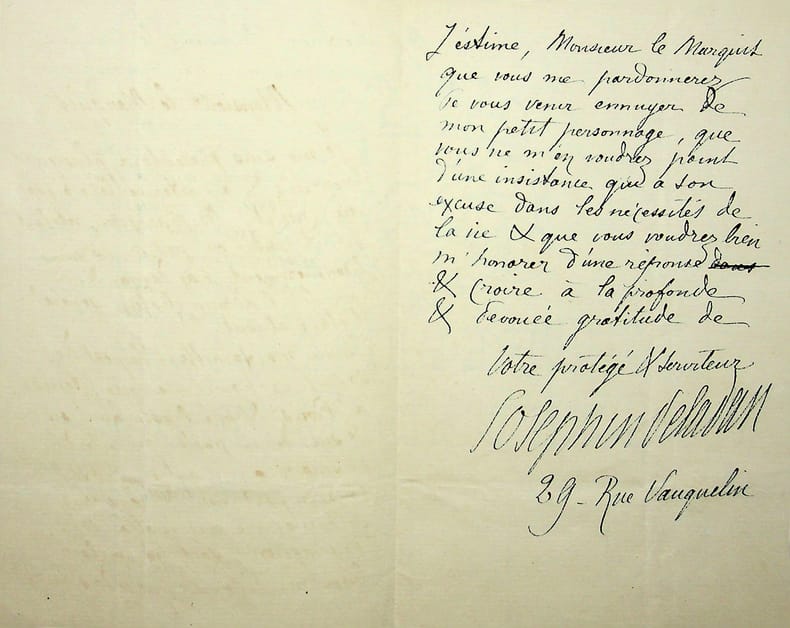 J'estime, Monsieur le Marquis
que vous me pardonnerez
de vous venir ennuyer de
mon petit personnage, que
vous ne m'en voudrez point
d'une insistance qui a son
excuse dans les nécessités de
la vie & que vous voudrez bien
m'honorer d'une réponse dans
& croire à la profonde
& dévouée gratitude de
Votre protégé & serviteur
Josephin Peladan
29 - Rue Vauquelin